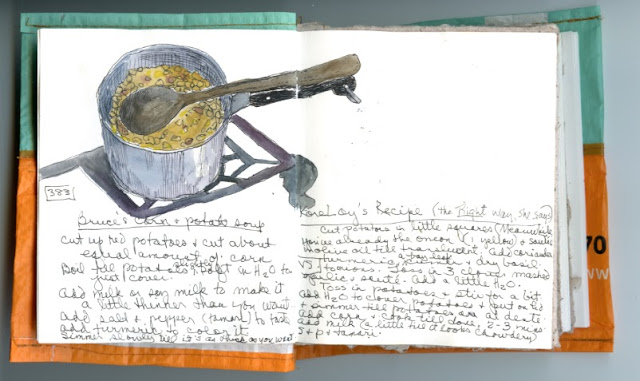 383
Bruce's Corn + potato soup
cut up red potatoes + cut about
equal amount of corn
Boil till potatoes in H2O to
just cover
add milk or soy milk to make it
a little thinner than you want
add salt + pepper (tamari) to taste
add turmeric to color it
Simmer slowly til it's as thick as you want
KoreLoy's Recipe (the Right way, she says)
Cut potatoes in little squares (Meanwhile
already the onion (1 yellow) + sautee
in olive oil till translucent. Add coriander
turmeric + dry basil
Toss in 3 cloves mashed
garlic + sauté. Add a little H2O.
Toss in potatoes + stir for a bit
add H2O to cover potatoes + put on lid
simmer till potatoes are al dente.
add corn + cook till done, 2-3 mins.
add milk (a little til it looks chowdery)
S + p + tamari.
70
WW